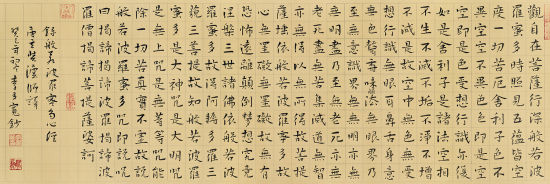 觀自在菩薩行深般若波
羅蜜多時照見五蘊皆空
度一切苦厄舍利子色不
異空空不異色色即是空
空即是色受想行識亦復
如是舍利子是諸法空相
不生不滅不垢不淨不增
不減是故空中無色無受
想行識無眼耳鼻舌身意
無色聲香味觸法無眼界乃
至無意識界無無明亦無
無明盡乃至無老死亦無
老死盡無苦集滅道無智
亦無得以無所得故菩提
薩埵依般若波羅蜜多故
心無罣礙無罣礙故無有
恐怖遠離顛倒夢想究竟
涅槃三世諸佛依般若波
羅蜜多故得阿耨多羅三
藐三菩提故知般若波羅
蜜多是大神咒是大明咒
是無上咒是無等等咒能
除一切苦真實不虛故說
般若波羅蜜多咒即說咒
曰揭諦揭諦波羅揭諦波
羅僧揭諦菩提薩婆訶
錄般若波羅蜜多心經
唐三藏法師譯
癸巳初冬李